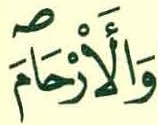 وَالأَرْحَامَ صہ